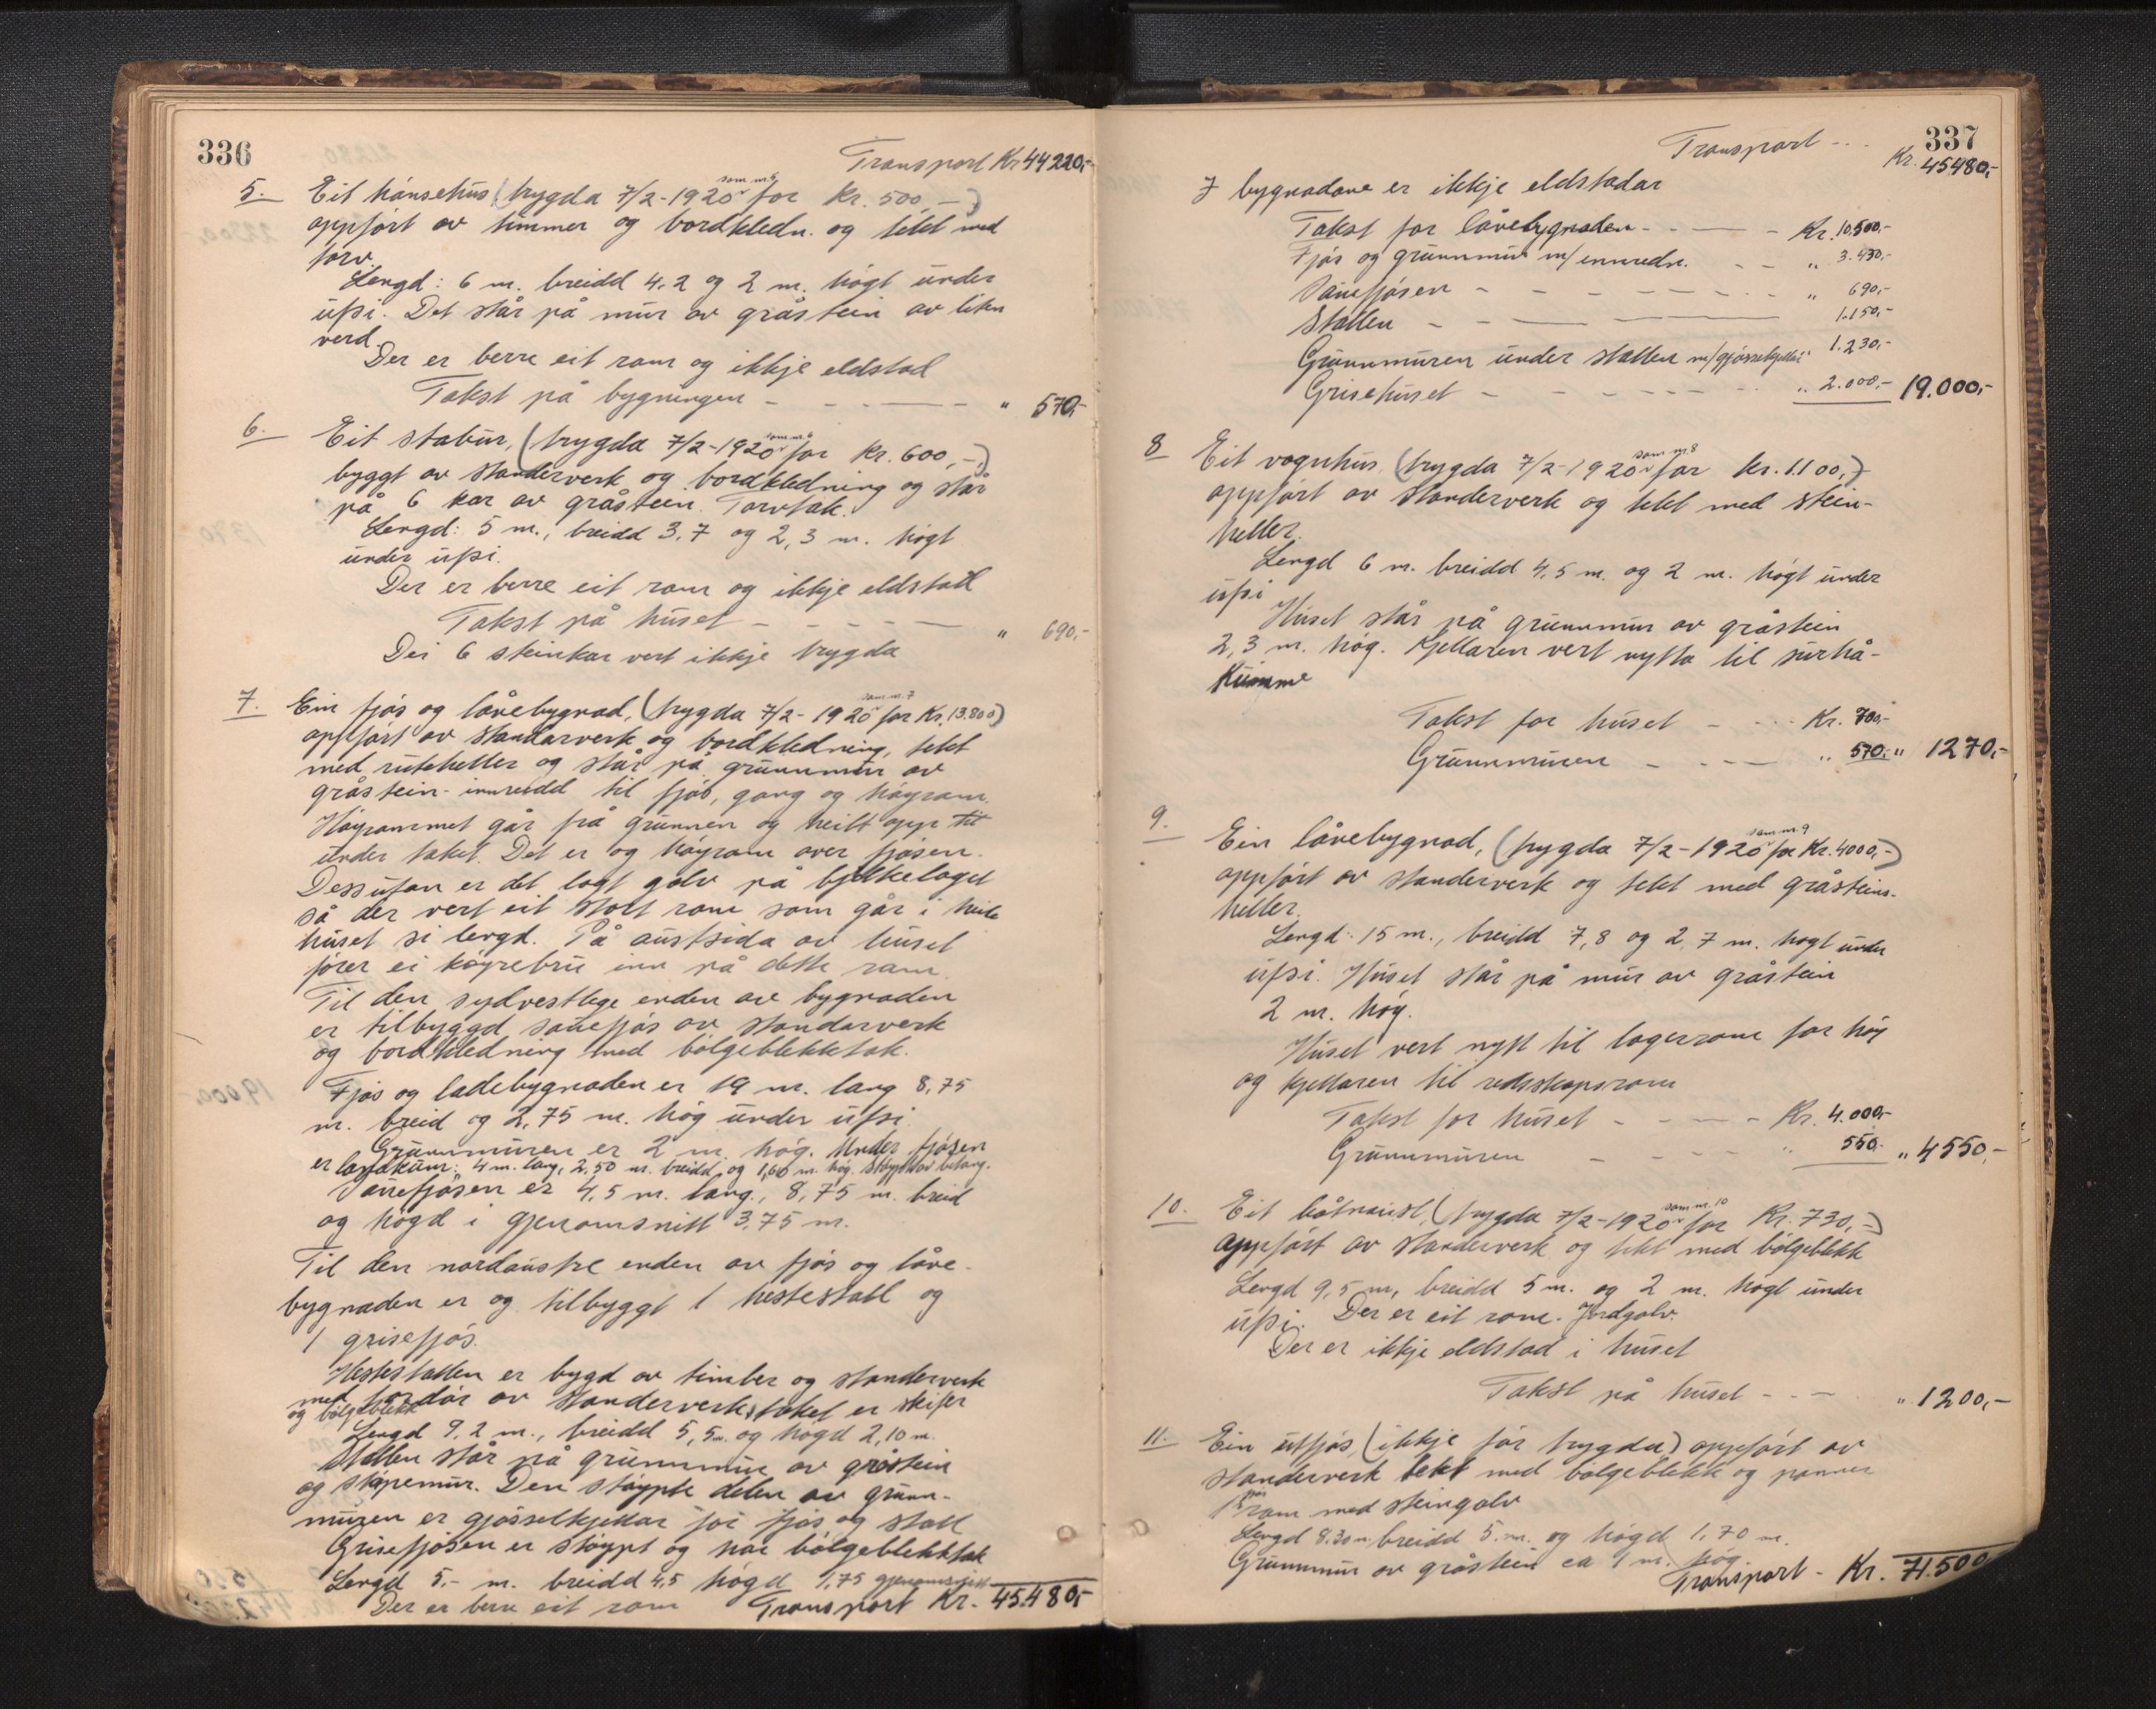 336
Transport Kr 44220,-
5. Eit hönsehus (trygda 7/2-1920 som nr. 5 for Kr. 500,-)
oppført av timmer og bordkledn. og tekt med
torv.
Lengd: 6 m. breidd 4,2 og 2 m. högt under
upsi. Det står på mur av gråstein av liten
verd.
Der er berre eit rom og ikkje eldstad
Takst på bygningen - - - - " 570,-
6. Eit stabur, (trygda 7/2-1920 som nr. 6 for Kr. 600,-)
byggt av standerverk og bordkledning og står
på 6 kar av gråstein. Torvtak.
Lengd: 5 m., breidd 3,7 og 2,3 m. högt
under upsi.
Der er berre eit rom og ikkje eldstad
Takst på huset - - - - " 690,-
Dei 6 steinkar vert ikkje trygda
7. Ein fjös og låvebygnad, (trygda 7/2-1920 som nr. 7 for Kr. 13.800)
oppfört av standarverk og bordkledning, tekt
med ruteheller og står på grunnmur av
gråstein - innreidd til fjös, gang og höyrom.
Höyrommet går frå grunnen og heilt opp til
under taket. Det er og höyrom over fjösen.
Dessutan er det lagt golv på bjelkelaget
så der vert eit stort rom som går i heile
huset si lengd. På austsida av huset
förer ei köyrebru inn på dette rom.
Til den sydvestlege enden av bygnaden
er tilbyggd sauefjös av standarverk
og bordkledning med bölgeblekktak.
Fjös og ladebygnaden er 19 m. lang 8,75
m. breid og 2,75 m. hög under upsi.
Grunnmuren er 2 m. hög. Under fjösen
er landkum: 4 m. lang, 2,50 m. breidd og 1,60 m. hög. Stöypt av betong.
Sauefjösen er 4,5 m. lang, 8,75 m. breid
og högd i gjenomsnitt 3,75 m.
Til den nordaustre enden av fjös og låve-
bygnaden er og tilbyggt 1 hestestall og
1 grisefjös.
Hestestallen er bygd av timber og standerverk
med fordör av standerverk, taket er skifer
og bölgeblekk
Lengd 9,2 m., breidd 5,5 m. og högd 2,10 m.
Stallen står på grunnmur av gråstein
og stöpemur. Den stöypte delen av grunn-
muren er gjösselkjellar for fjös og stall
Grisefjösen er stöypt og har bölgeblekktak
Lengd 5,- m. breidd 4,5 högd 1,75 gjenomsnitt
Der er berre eit rom Transport Kr. 45480,-
337
Transport - - Kr. 45480,-
I bygnadane er ikkje eldstadar
Takst for låvebygnaden - - - - Kr. 10.500,-
Fjös og grunnmur m/ innredn. - - " 3.430,-
Sauefjösen - - - - - - " 690,-
Stallen - - - - 1.150,-
Grunnmuren under stallen m/gjösselkjellar " 1.230,-
Grisehuset - - - - - " 2.000,- 19.000,-
8 Eit vognhus (trygda 7/2-1920 som nr. 8 for kr. 1100,-)
oppfört av standerverk og tekt med stein-
heller.
Lengd 6 m. breidd 4,5 m. og 2 m. högt under
upsi
Huset står på grunnmur av gråstein
2,3 m. hög. Kjellaren vert nytta til surhå-
kumme
Takst for huset - - - Kr. 700,-
Grunnmuren - - - - " 570,- " 1270,-
9. Ein låvebygnad, (trygda 7/2-1920 som nr. 9 for Kr. 4000,-)
oppfört av standerverk og tekt med gråsteins-
heller.
Lengd: 15 m., breidd 7,8 og 2,7 m. högt under
upsi. Huset står på mur av gråstein
2 m. hög.
Huset vert nytt til lagerrom for höy
og kjellaren til redskapsrom
Takst for huset - - - - Kr. 4.000,-
Grunnmuren - - - - " 550,- " 4550,-
10. Eit båtnaust, (trygda 7/2-1920 som nr. 10 for Kr. 730,-)
oppfört av standerverk og tekt med bölgeblekk
Lengd 9,5 m, breidd 5 m. og 2 m. högt under
upsi. Der er eit rom. Jordgolv.
Der er ikkje eldstad i huset
Takst på huset - - - " 1200,-
11. Ein utfjös, (ikkje för trygda) oppfört av
standerverk tekt med bölgeblekk og panner
1 rom med steingolv
Lengd 8.30 m breidd 5 m. og högd 1,70 m.
Grunnmur av gråstein ca 1 m. hög.
Transport - Kr. 71.500